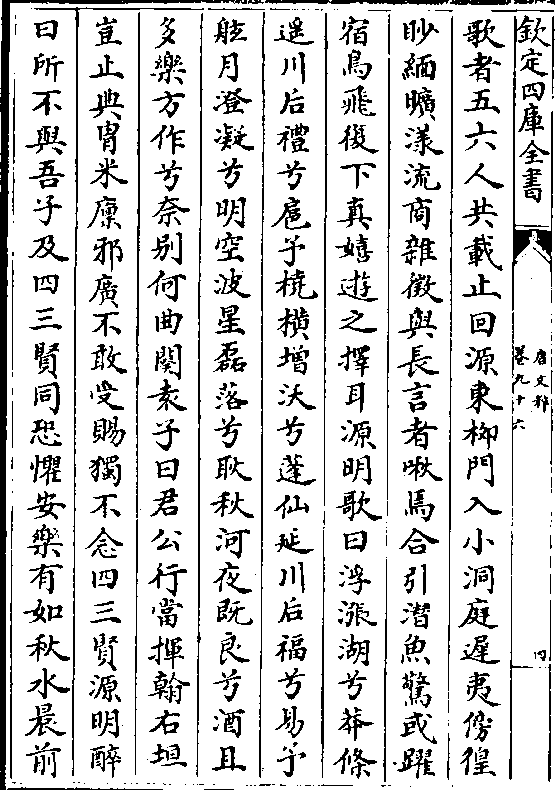 欽定四庫全書
唐文粹
卷九十六
四
歌者五六人共載止回源東柳門入小洞庭遲夷傍徨
眇緬曠漾流商雜徴與長言者啾焉合引潛魚驚或躍
宿鳥飛復下真嬉遊之擇耳源明歌曰浮漲湖兮莽條
遥川后禮兮扈予橈橫增沃兮蓬仙延川后福兮易予
舷月澄凝兮明空波星磊落兮耿秋河夜既良兮酒且
多樂方作兮奈别何曲闋袁子曰君公行當揮翰右垣
豈止典胄米廩邪廣不敢受賜獨不念四三賢源明醉
曰所不與吾子及四三賢同恐懼安樂有如秋水晨前